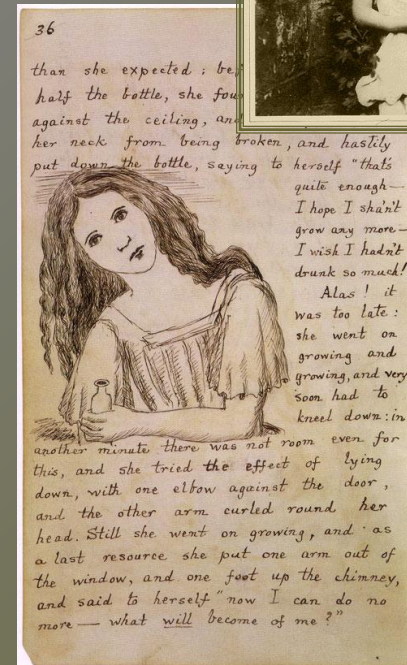 36
than she expected : be
half the bottle, she fou
against the ceiling, and
her neck from being broken, and hastily
put down the bottle, saying to herself "that's
quite enough—
I hope I shan't
grow any more—
I wish I hadn't
drunk so much!
Alas! it
was too late:
she went on
growing and
growing, and very
soon had to
kneel down: in
another minute there was not room even for
this, and she tried the effect of lying
down, with one elbow against the door,
and the other arm curled round her
head. Still she went on growing, and as
a last resource she put one arm out of
the window, and one foot up the chimney,
and said to herself "now I can do no
more — what will become of me?"